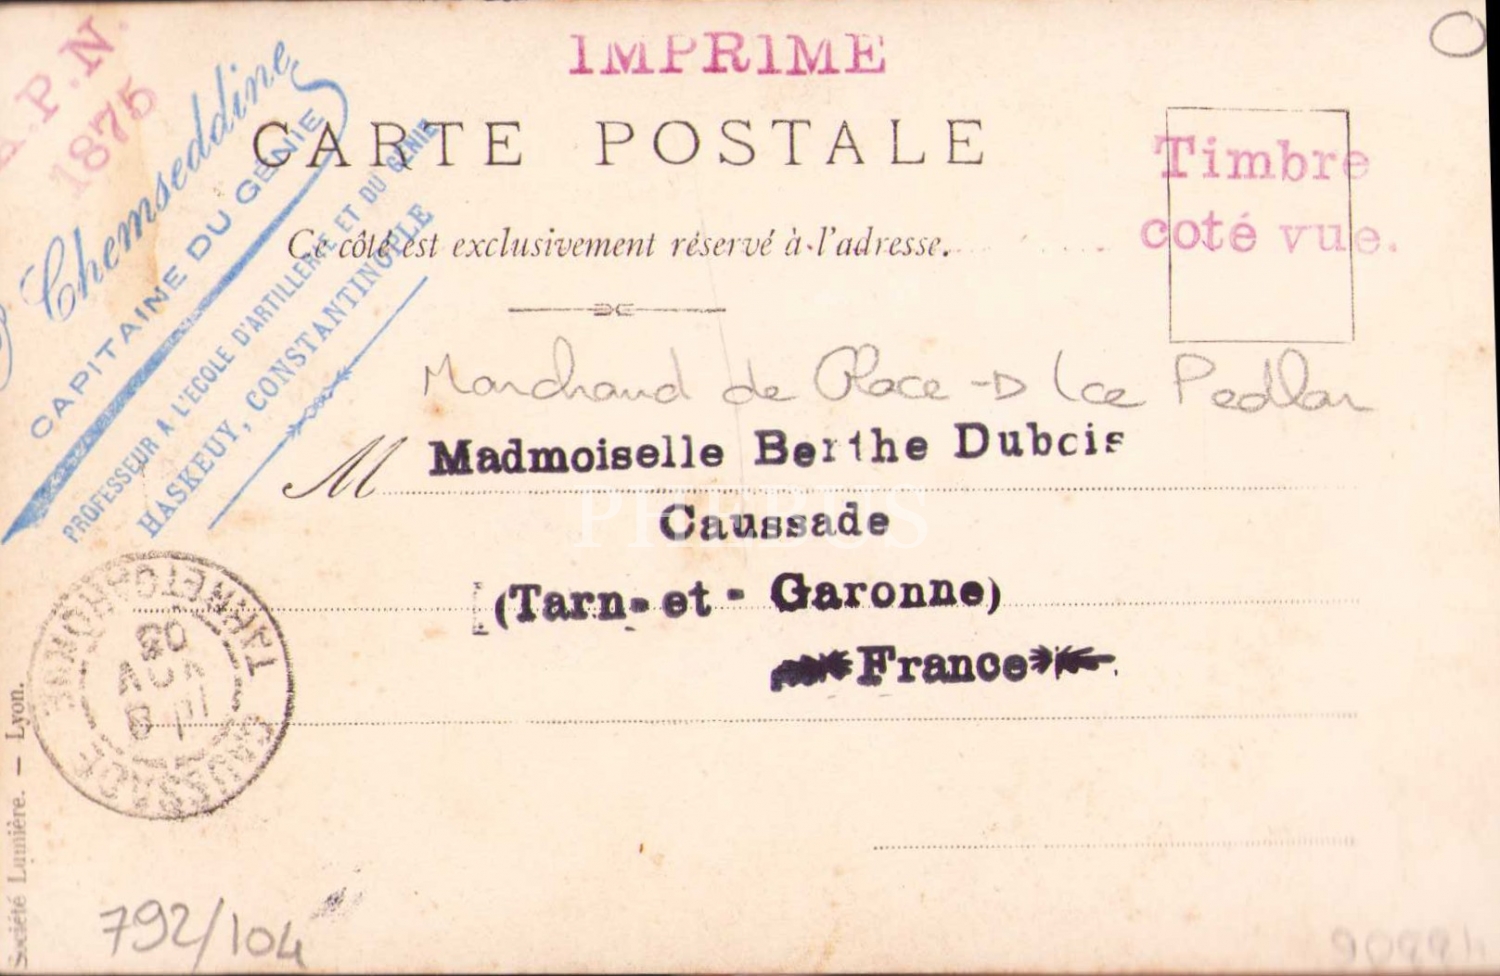 IMPRIME
A.P.N.
1875
CARTE POSTALE
Ce côté est exclusivement réservé à l'adresse.
Timbre
coté vue.
Chemseddine
CAPITAINE DU GÉNIE
PROFESSEUR A L'ECOLE D'ARTILLERIE ET DU GÉNIE
HASKEUY, CONSTANTINOPLE
Marchand de Glace -D Ice Pedlar
M Madmoiselle Berthe Dubois
Caussade
(Tarn-et-Garonne)
France
PHEBUS
CAUSSADE
TARN-ET-GARONNE
Société Lumière. — Lyon.
792/104